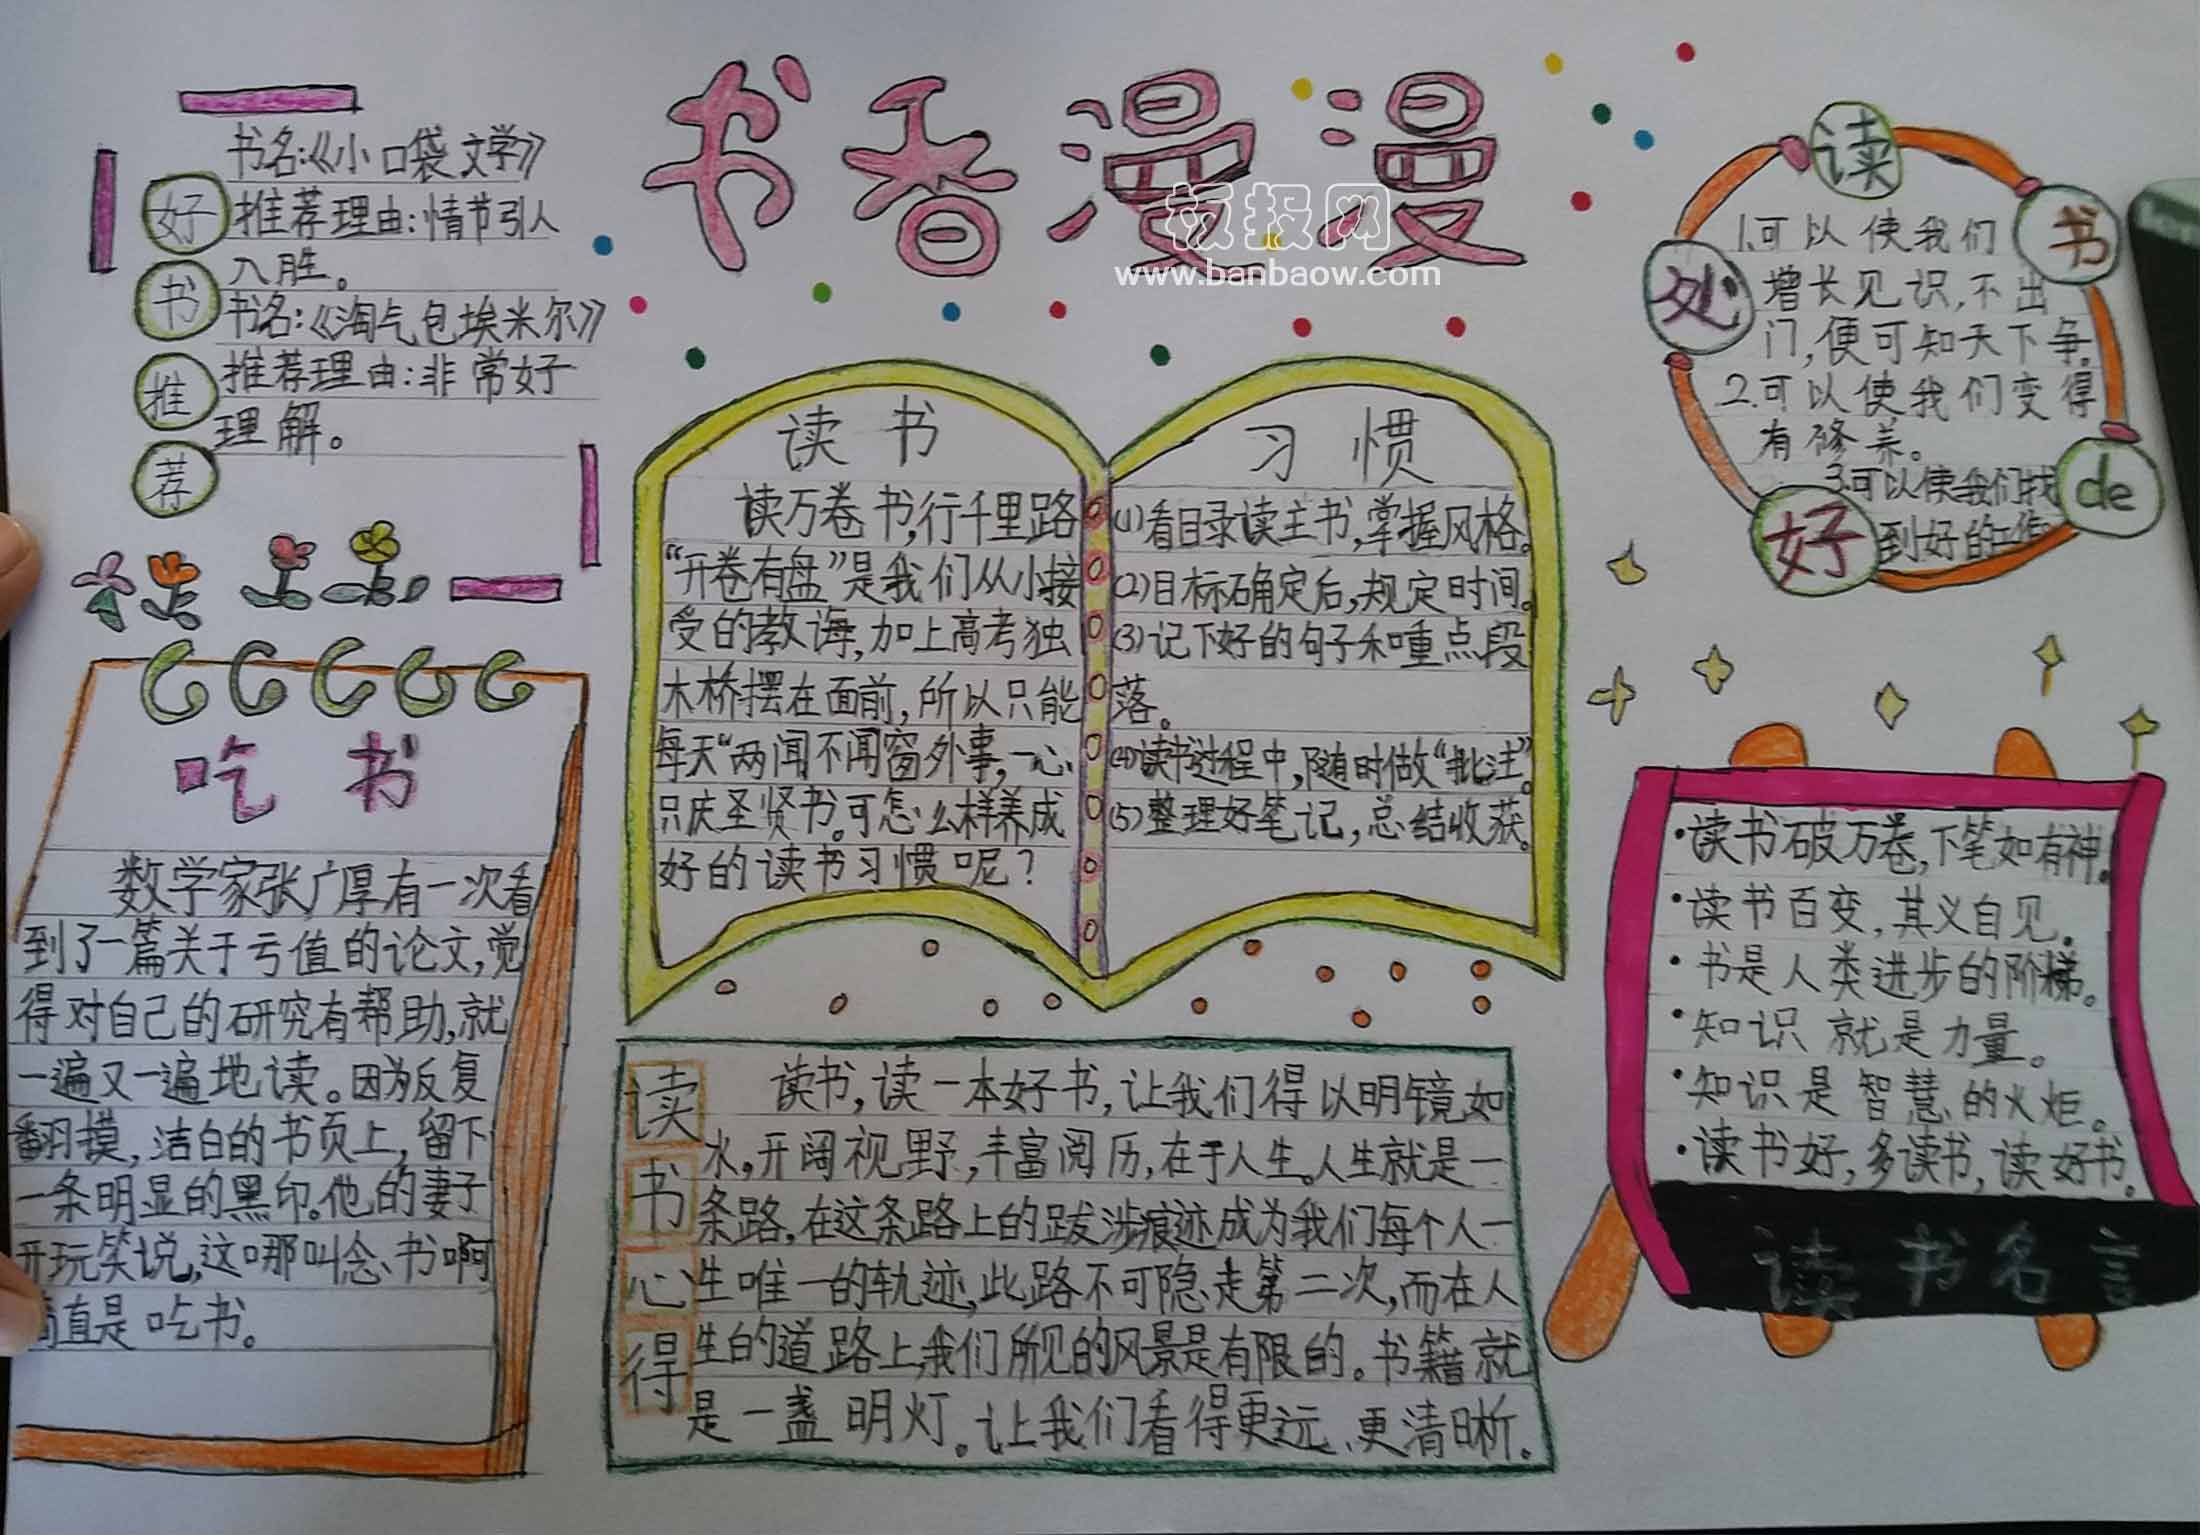 书香漫漫
板报网
www.banbaow.com
好书推荐
书名:《小口袋文学》
推荐理由:情节引人
入胜。
书名:《淘气包埃米尔》
推荐理由:非常好
理解。
吃书
数学家张广厚有一次看
到了一篇关于亏值的论文,觉
得对自己的研究有帮助,就
一遍又一遍地读。因为反复
翻摸,洁白的书页上,留下
一条明显的黑印。他的妻子
开玩笑说,这哪叫念书啊
简直是吃书。
读书
读万卷书,行千里路
“开卷有益”是我们从小接
受的教诲,加上高考独
木桥摆在面前,所以只能
每天“两闻不闻窗外事,一心
只庆圣贤书。可怎么样养成
好的读书习惯呢?
习惯
(1)看目录读主书,掌握风格。
(2)目标确定后,规定时间。
(3)记下好的句子和重点段
落。
(4)读书过程中,随时做“批注”。
(5)整理好笔记,总结收获。
读书心得
读书,读一本好书,让我们得以明镜如
水,开阔视野,丰富阅历,在于人生。人生就是一
条路,在这条路上的跋涉痕迹成为我们每个人一
生唯一的轨迹,此路不可隐走第二次,而在人
生的道路上,我们所见的风景是有限的。书籍就
是一盏明灯。让我们看得更远、更清晰。
读书de好处
1.可以使我们
增长见识,不出
门,便可知天下争。
2.可以使我们变得
有修养。
3.可以使我们找
到好的工作
·读书破万卷,下笔如有神。
·读书百变,其义自见。
·书是人类进步的阶梯。
·知识就是力量。
·知识是智慧的火炬。
·读书好,多读书,读好书。
读书名言